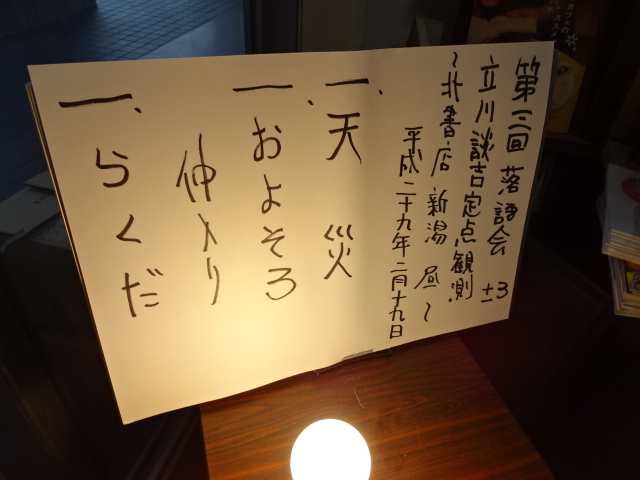 第三回 落語会 ±3
立川談吉定点観測
~北書店 新潟 昼~
平成二十九年二月十九日
一、天災
一、およそろ
仲入り
一、らくだ